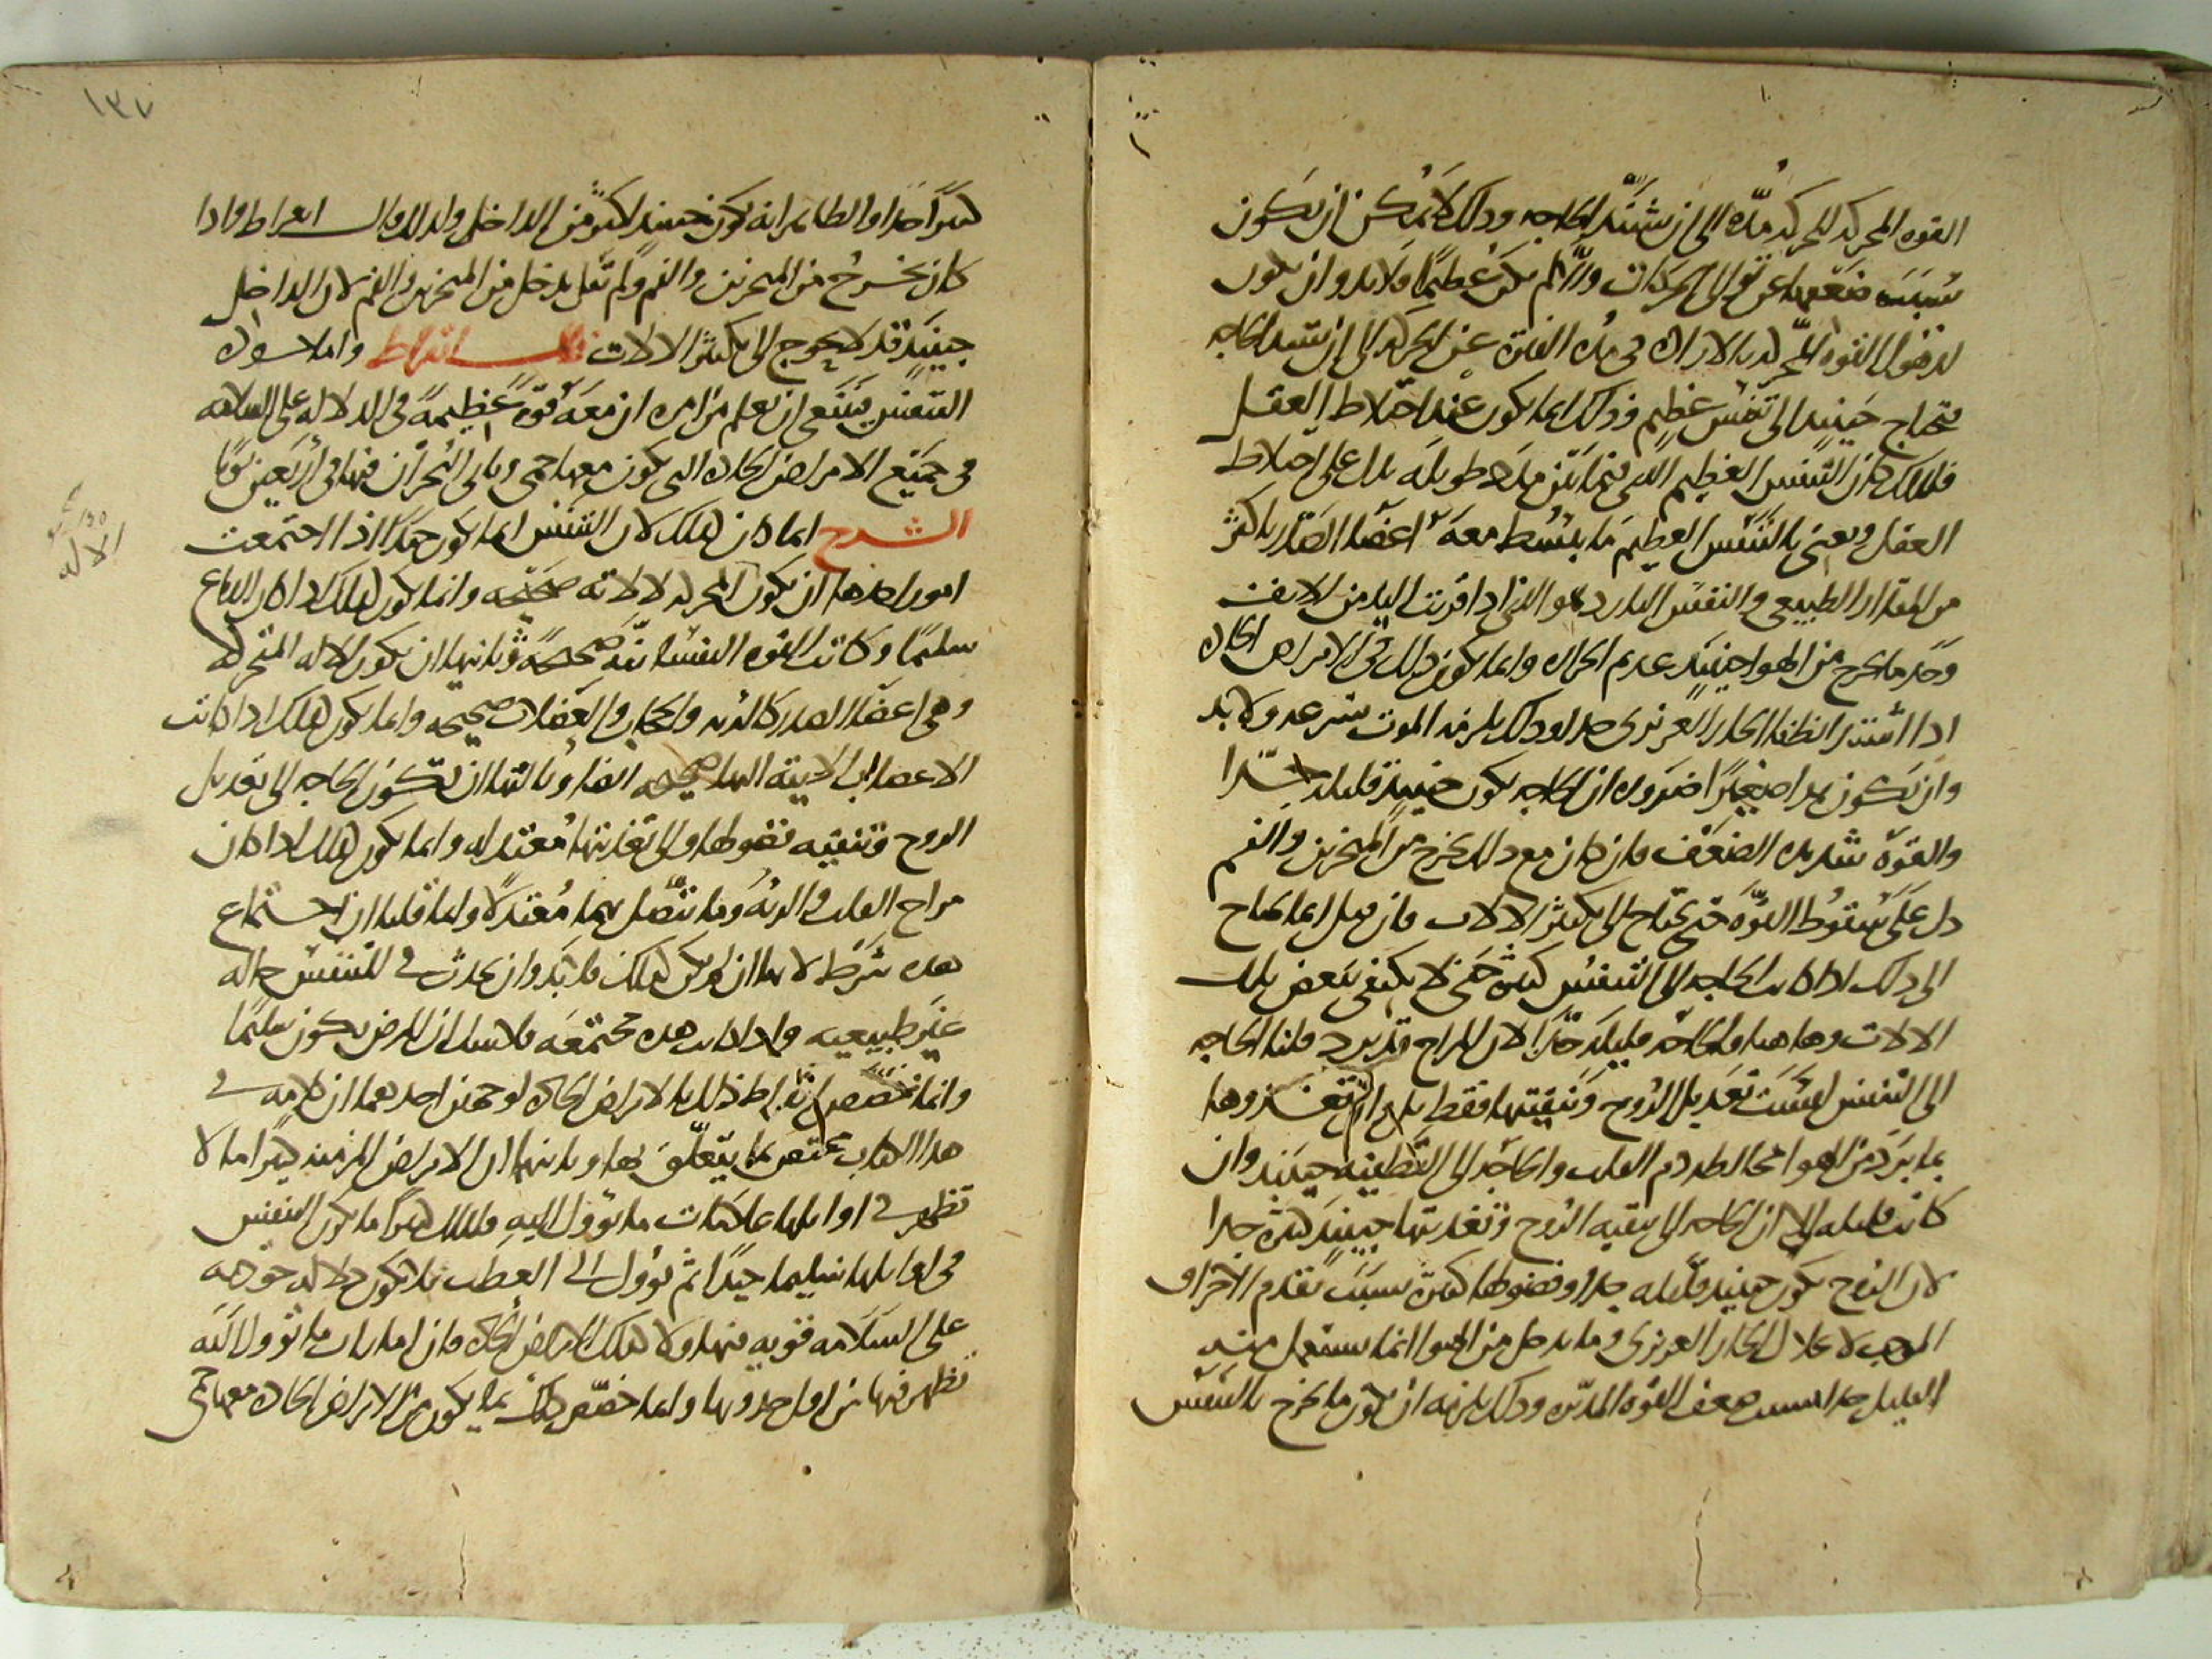 القوه المحركه للحركه مدة الى ان تشتد الحاجه وذلك لا يمكن ان يكون
بسبب ضعفها عن توالى الحركات والا لم يكن عظيما فلا بد وان يكون
لذهول القوه المحركه بالاراده فى هذه الفتره عن الحركه الى ان تشتد الحاجه
فتحتاج حينيد الى تنفس عظيم وذلك انما يكون عند اختلاط العقل
فلذلك كان التنفس العظيم الذى فيما بين مدد طويله يدل على اختلاط
العقل ونعنى بالتنفس العظيم ما ينبسط معه اعضا الصدر باكثر
من المقدار الطبيعى والنفس البارد هو الذى اذا قربت اليد من الانف
وجد ما يخرج من الهوا حينيد عديم الحراره وانما يكون ذلك فى الامراض الحاده
اذا اشتد انطفا الحار الغريزى جدا وذلك يلزمه الموت بسرعه ولا بد
وان يكون هذا صغيرا ضروره ان الحاجه تكون حينيد قليله جدا
والقوه شديده الضعف فان كان مع ذلك يخرج من المنخرين والفم
دل على سقوط القوه حتى تحتاج الى تكثير الالات فان قيل انما يحتاج
الى ذلك اذا كانت الحاجه الى التنفس كثيره حتى لا يكتفى ببعض تلك
الالات وهاهنا فالحاجه قليله جدا لان المزاج قد برد قلنا الحاجه
الى التنفس ليست تعديل الروح وتنقيتها فقط بل وان تغذوها
بما يبرد من الهوا مخالطه دم القلب والحاجه الى التطفيه حينيد وان
كانت قليله الا ان الحاجه الى تنقيه الروح وتغذيتها حينيد كثيره جدا
لان الروح تكون حينيد قليله جدا وفضولها كثيره بسبب تقدم الاحتراق
الموجب لانحلال الحار الغريزى وما يدخل من الهوا انما يستعمل منه
القليل جدا بسبب ضعف القوه المدبره وذلك يلزمه ان يكون ما يخرج بالتنفس
١٣٧
كثيرا جدا والظاهر انه يكون حينيد اكثر من الداخل ولذلك قال ابقراط واذا
كان يخرج من المنخرين والفم ولم يقل يدخل من المنخرين والفم لان الداخل
حينيد قد لا يحوج الى تكثير الالات قال ابقراط واما جوده
التنفس فينبغى ان يعلم من امره ان معه قوة عظيمة فى الدلاله على السلامه
فى جميع الامراض الحاده التى يكون معها حمى وياتى البحران فيها فى اربعين يوما
الشرح انما كان كذلك لان التنفس انما يكون جيدا اذا اجتمعت
امور احدها ان يكون المحركه لالاته صحيحه وانما يكون كذلك اذا كان الدماغ
سليما وكانت القوه النفسانيه صحيحه وثانيها ان يكون الاله المتحركه
وهى اعضا الصدر كالريه والحجاب والعضلات صحيحه وانما يكون كذلك اذا كانت
الاعصاب الاتيه اليها صحيحه ايضا وثالثها ان تكون الحاجه الى تعديل
الروح وتنقيه فضولها والى تغذيتها معتدله وانما يكون كذلك اذا كان
مزاج القلب والريه وما يتصل بهما معتدلا وانما قلنا ان اجتماع
هذه شرط لانها ان لم يكن كذلك فلا بد وان يحدث فى التنفس حاله
غير طبيعيه واذا كانت هذه مجتمعه فلا شك ان المرض يكون سليما
وانما خصص ابقراط ذلك بالامراض الحاده لوجهين احدهما ان كلامه فى
هذا الكتاب مختص بما يتعلق بها وثانيها ان الامراض المزمنه كثيرا ما لا
تظهر فى اوايلها علامات ما تؤول اليه فلذلك كثيرا ما يكون التنفس
فى اوايلها سليما جيدا ثم تؤول الى العطب فلا تكون دلاله جودته
على السلامه قويه فيها ولا كذلك الامراض الحاده فان امارات ما تؤول اليه
تظهر فيها من اول حدوثها وانما خصص ذلك بما يكون من الامراض الحاده معها حمى
الاله